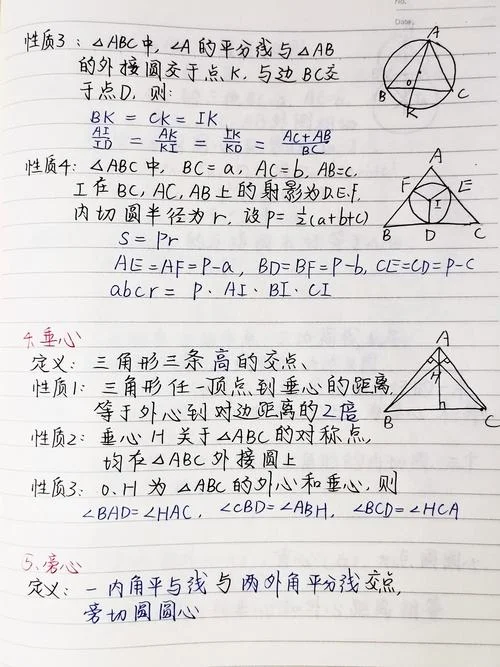 No.
Date.
性质3：△ABC中，∠A的平分线与△AB
的外接圆交于点K，与边BC交
于点D，则：
BK = CK = IK
AI/ID = AK/KI = IK/KD = AC+AB/BC
A
O
B
C
K
性质4：△ABC中，BC=a，AC=b，AB=c，
I在BC，AC，AB上的射影为D.E.F，
内切圆半径为r，设P=½(a+b+c)
S = pr
AE=AF=P-a，BD=BF=P-b，CE=CD=P-C
abcr = P·AI·BI·CI
A
F
E
I
B
D
C
4.垂心
定义：三角形三条高的交点、
性质1：三角形任一顶点到垂心的距离，
等于外心到对边距离的2倍
性质2：垂心H关于△ABC的对称点，
均在△ABC外接圆上
性质3：O、H为△ABC的外心和垂心，则
∠BAD=∠HAC，∠CBD=∠ABH，∠BCD=∠HCA
A
H
B
C
5、旁心
定义：一内角平与线与两外角平分线交点，
旁切圆圆心